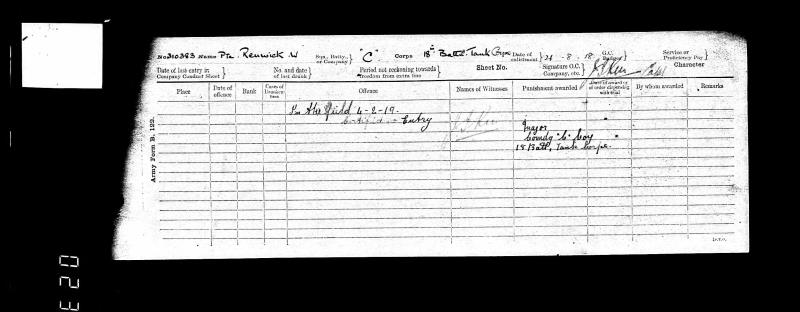 No 310383 Name Pte. Renwick. W Sqn., Batty., or Company} "C" Corps 18th Battn. Tank Corps Date of enlistment} 21-8-18 G.C. Badges} Service or Proficiency Pay}
Date of last entry in Company Conduct Sheet} No. and date of last drunk} Period not reckoning towards freedom from extra fine} Sheet No. Signature O.C. Company, etc.} Character
Place Date of offence Rank Cases of Drunkenness Offence Names of Witnesses Punishment awarded Date of award or of order dispensing with trial By whom awarded Remarks
In the Field 4-2-19.
Certified no Entry
Major
Comdg "C" Coy
18 Batt, Tank Corps.
Army Form B. 122.
E20